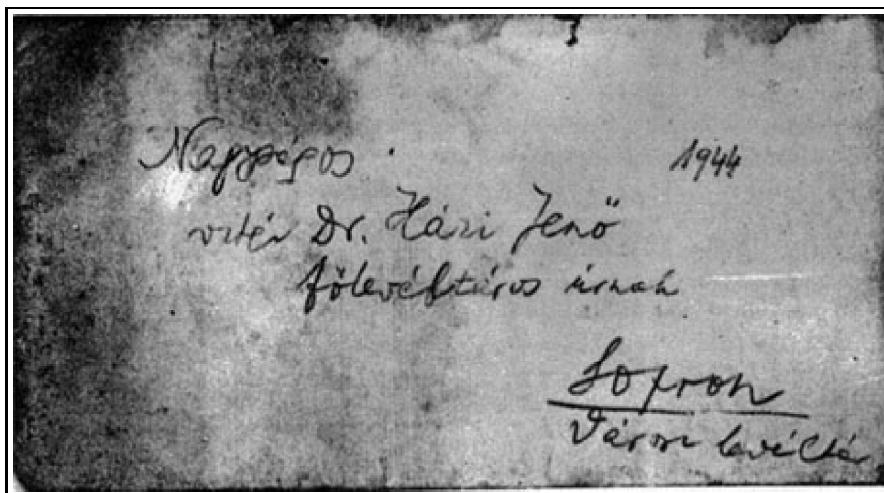 Nagyságos 1944
vitéz Dr. Házi Jenő
főlevéltáros úrnak
Sopron
Városi levéltár